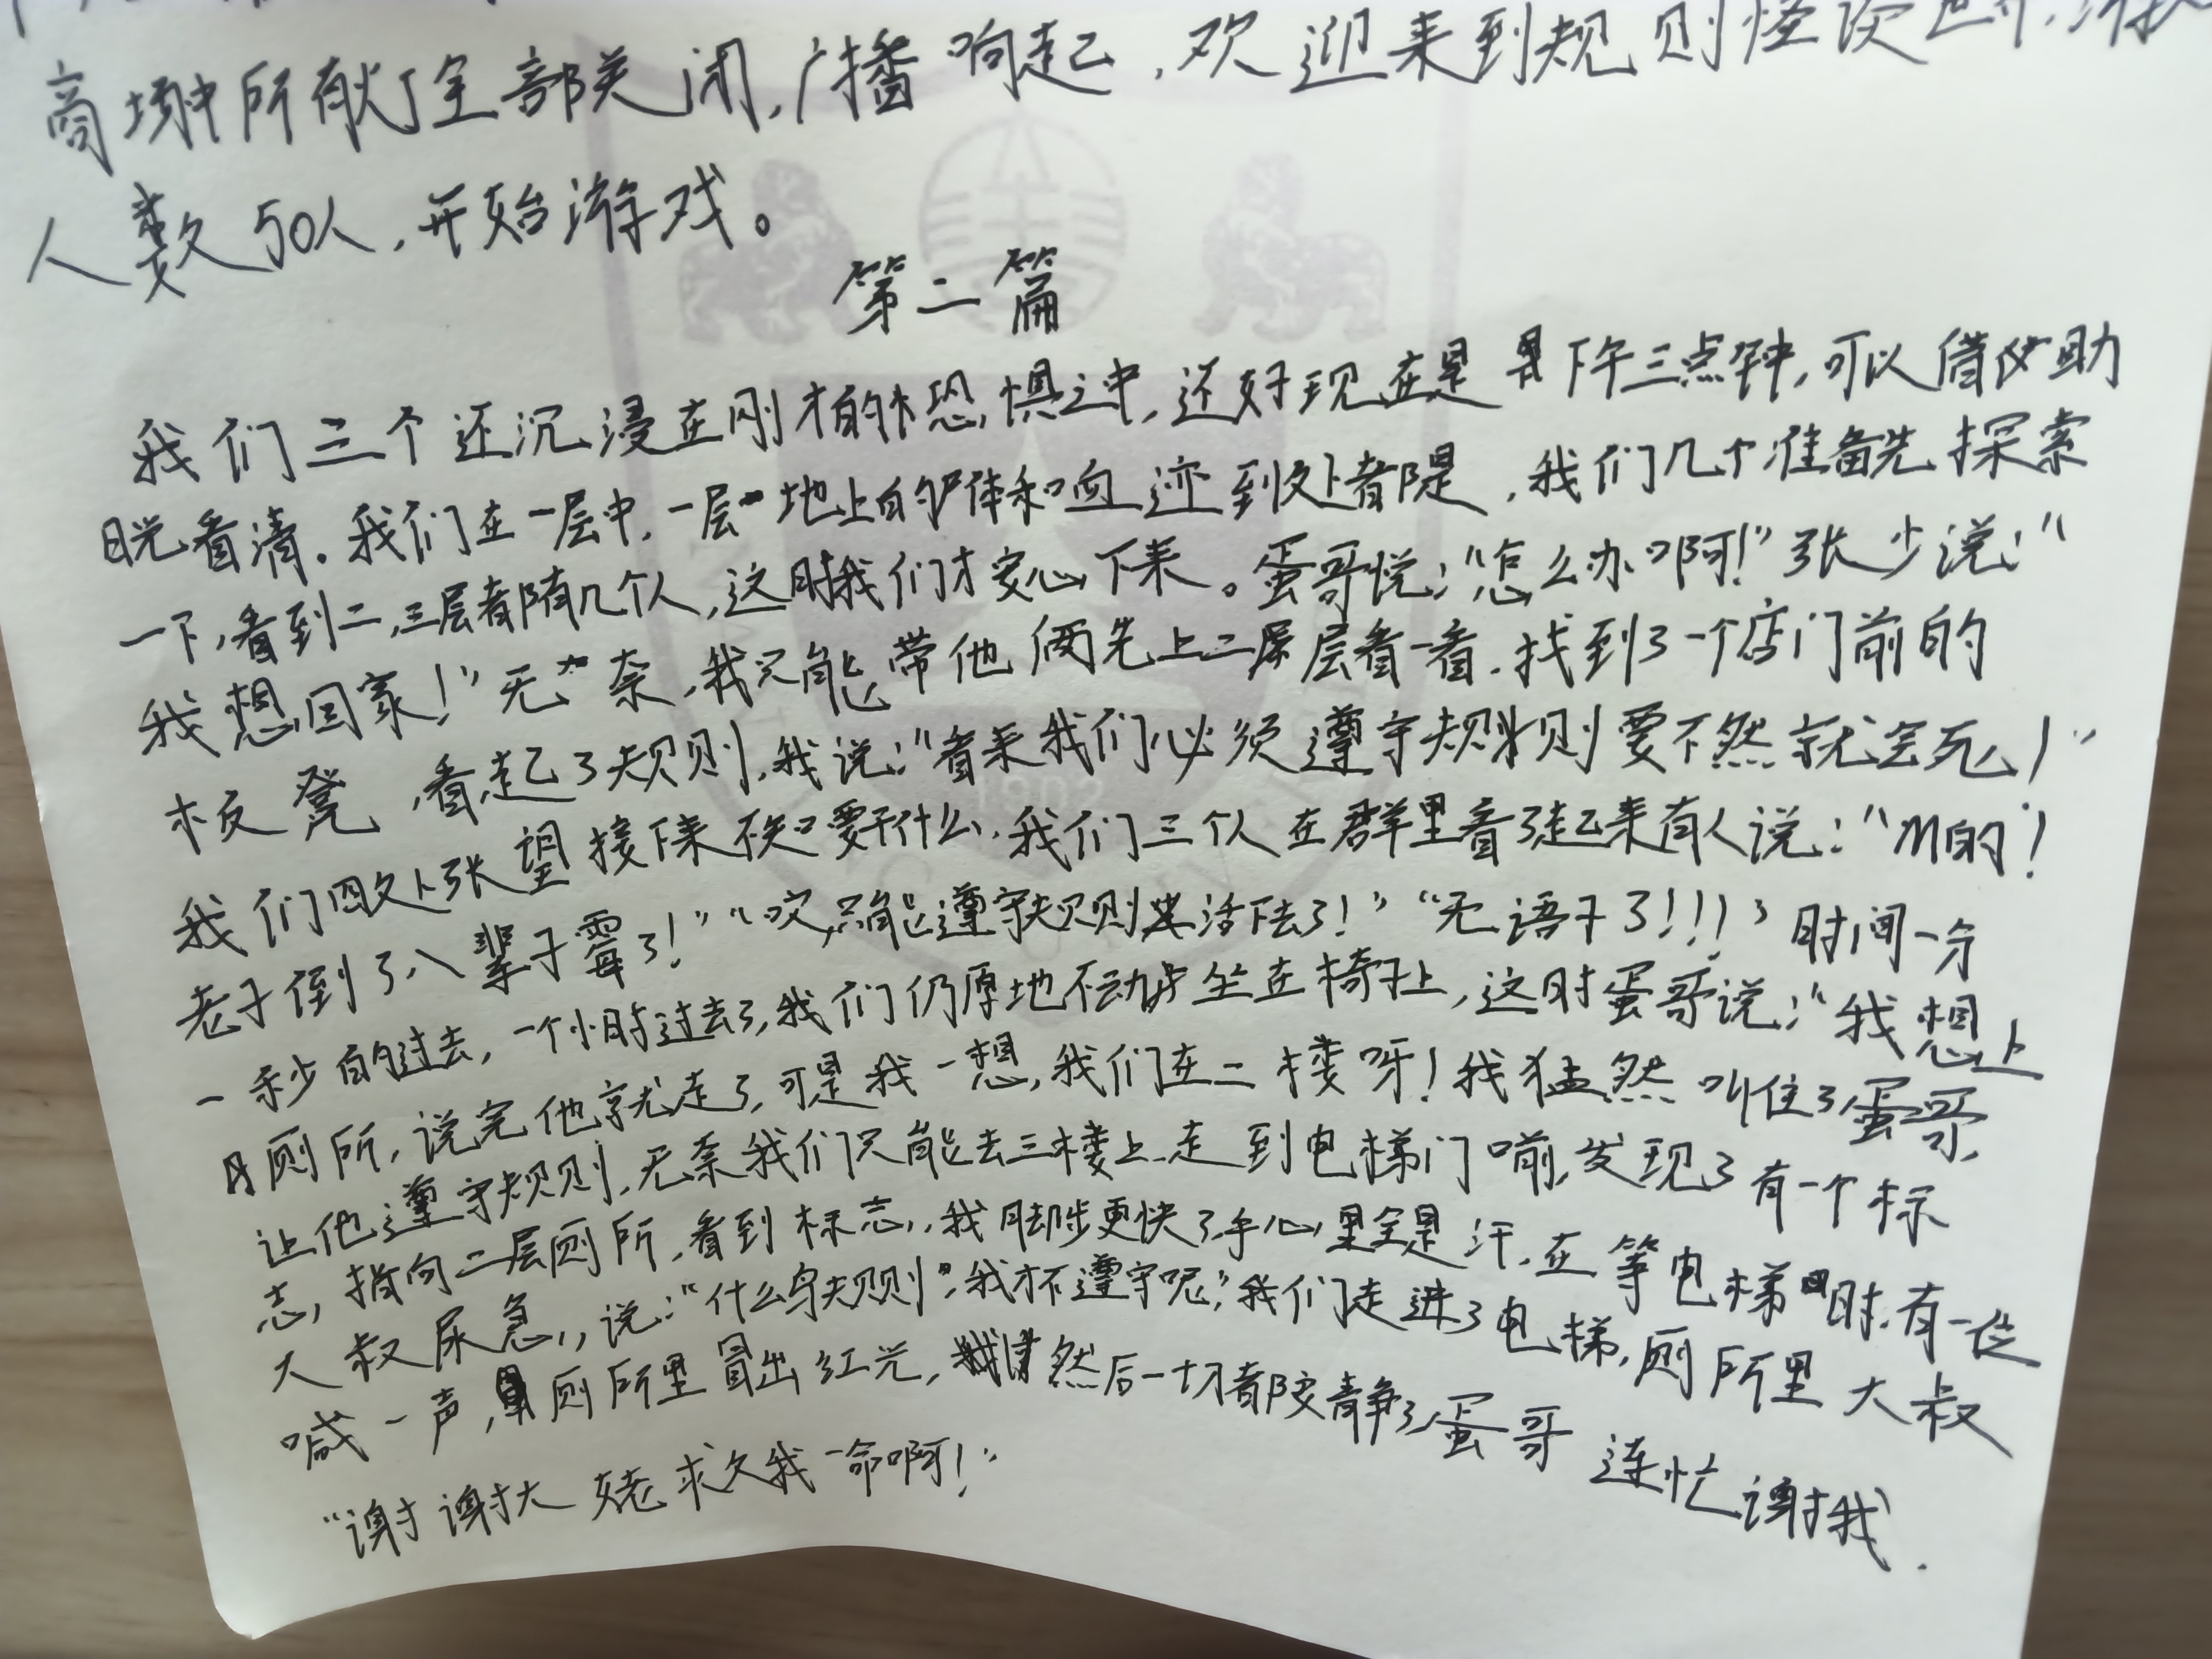 商场中所有灯全部关闭,广播响起,欢迎来到规则怪谈
人数50人,开始游戏。
第二篇
我们三个还沉浸在刚才的恐惧之中,还好现在是下午三点钟,可以借助
晄看清.我们在一层中,一层地上的尸体和血迹到处都是,我们几个准备先探索
一下,看到二,三层都有几个人,这时我们才安心下来。蛋哥说:"怎么办啊!"张少说:"
我想回家!"无奈,我只能带他俩先上二层看一看.找到了一个店门前的
板凳,看起了规则,我说:"看来我们必须遵守规则要不然就会死!"
我们四处张望接下来不知要干什么,我们三个人在群里看了起来有人说:"M的!
老子倒了八辈子霉了!""哎,只能遵守规则活下去了!""无语子了!!!"时间一分
一秒的过去,一个小时过去了,我们仍原地不动坐在椅子上,这时蛋哥说:"我想上
厕所,说完他就走了,可是我一想,我们在二楼呀!我猛然叫住了蛋哥,
让他遵守规则,无奈我们只能去三楼上.走到电梯门前,发现了有一个标
志,指向二层厕所,看到标志,我脚步更快了,手心里全是汗,在等电梯时,有一位
大叔尿急,,说:"什么鸟规则",我才不遵守呢",我们走进了电梯,厕所里大叔
喊一声,厕所里冒出红光,然后一切都安静了,蛋哥连忙谢我.
"谢谢大佬求救我一命啊!"
1902